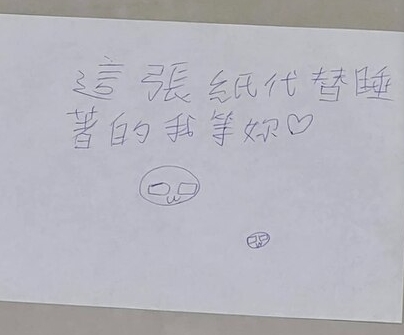 這張紙代替睡
著的我等妳♡